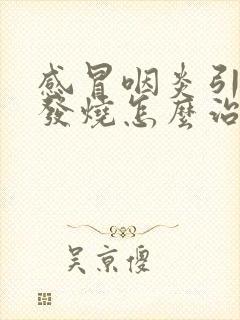 感冒咽炎引
發燒怎麼治
吴京傻